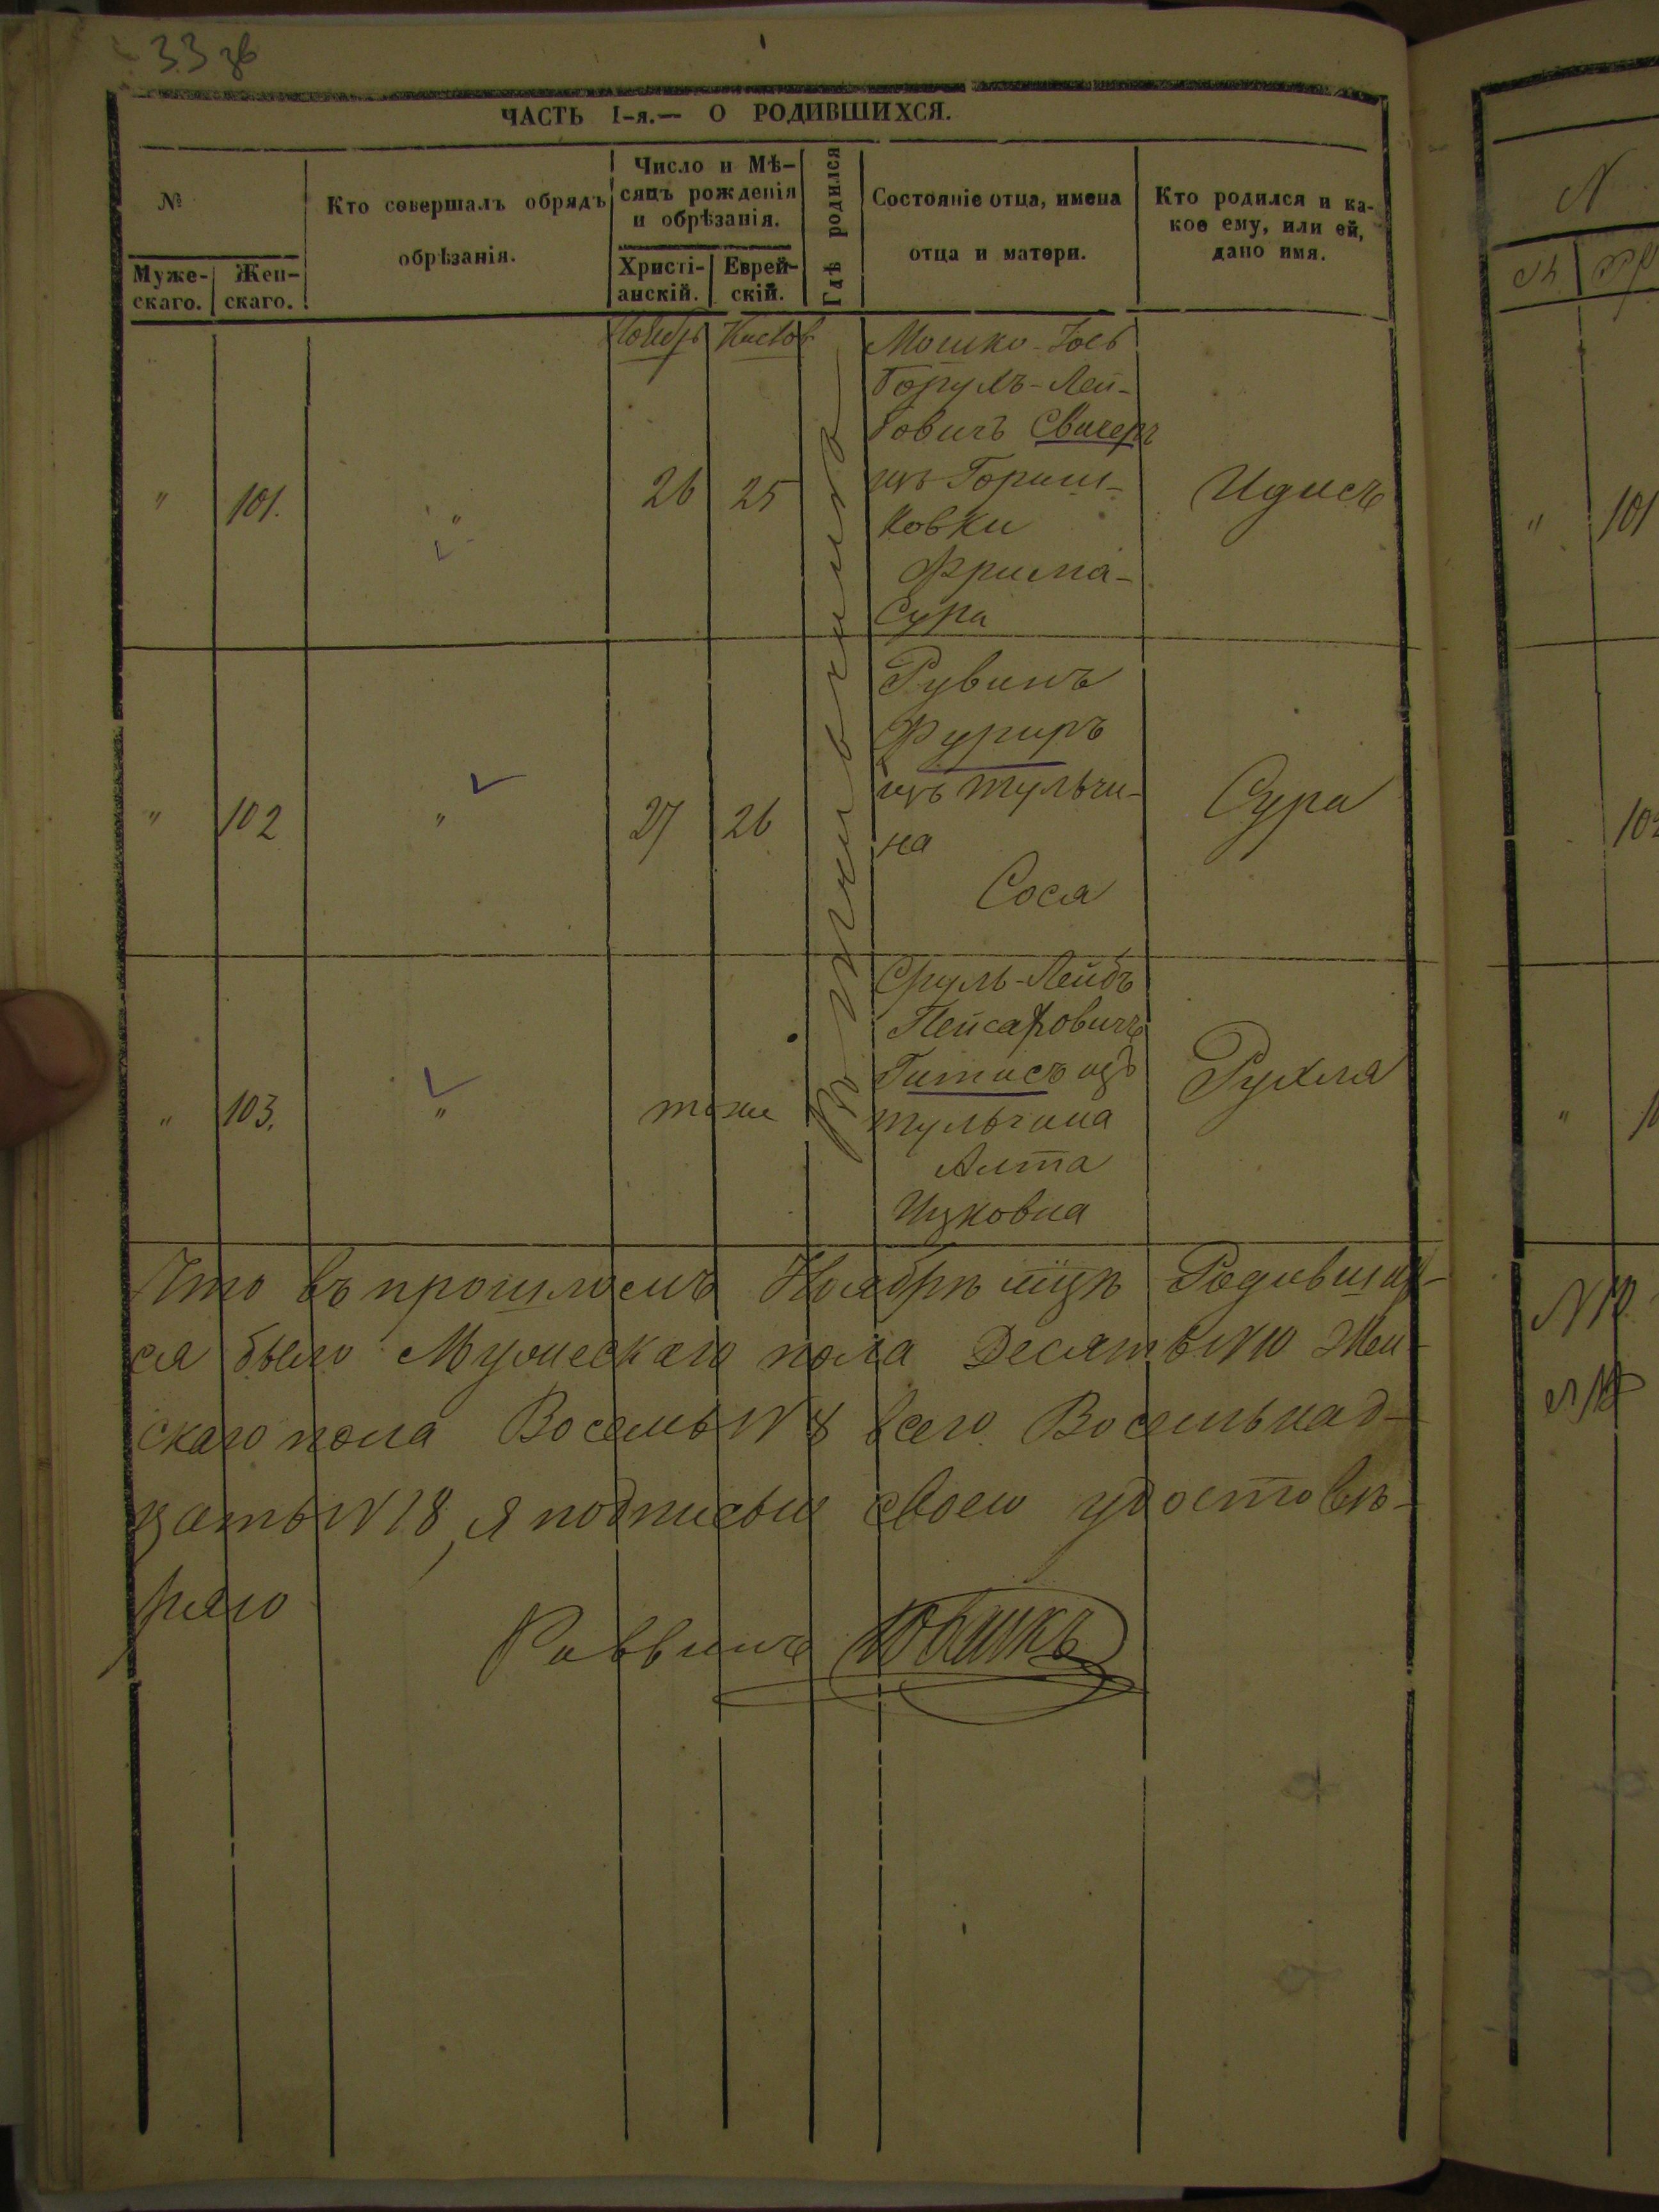 33 зв
ЧАСТЬ I-я.— О РОДИВШИХСЯ.
№
Муже-
скаго.
Жен-
скаго.
Кто совершалъ обрядъ
обрѣзанія.
Число и Мѣ-
сяцъ рожденія
и обрѣзанія.
Христі-
анскій.
Еврей-
скій.
Гдѣ родился
Состояніе отца, имена
отца и матери.
Кто родился и ка-
кое ему, или ей,
дано имя.
Ноябрь Кислев
" 101. " 26 25
Мошко-Іось
Борулъ-Лей-
бовичъ Свичеръ
изъ Гориш-
ковки
Фрима-
Сура
Идисъ
" 102 " 27 26
Рувинъ
Фуриръ
изъ Тульчи-
на
Сося
Сура
" 103. " тоже
Сруль-Лейбъ
Пейсаховичъ
Гитисъ изъ
Тульчина
Алта
Ицковна
Рухля
Что въ прошломъ Ноябрѣ мцѣ Родивших-
ся было Мужескаго пола Десять N 10 Жен-
скаго пола Восемь N 8 всего Восемьнад-
цать N 18, я подписью своею удостовѣ-
ряю
Раввинъ
N
101
N 10